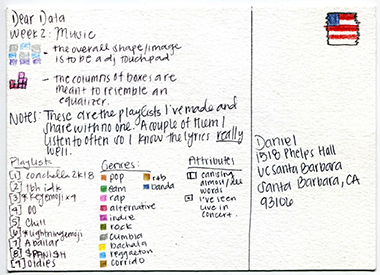 Dear Data
Week 2: Music
- the overall shape/image
is to be a dj touchpad
- the columns of boxes are
meant to resemble an
equalizer.
Notes: These are the playlists I've made and
share with no one. A couple of them I
listen to often so I know the lyrics really
well.
Playlists
[1] coachella 2k18
[2] tbh idk
[3] *keyemojix4
[4] 00
[5] Chill
[6] *lightningemoji
[7] A bailar
[8] SPANISH
[9] oldies
Genres:
pop
edm
rap
alternative
indie
rock
cumbia
bachata
reggaeton
corrido
r&b
banda
Attributes
can sing
almost/all
words
I've seen
live in
concert.
Daniel
1518 Phelps Hall
UC Santa Barbara
Santa Barbara, CA
93106